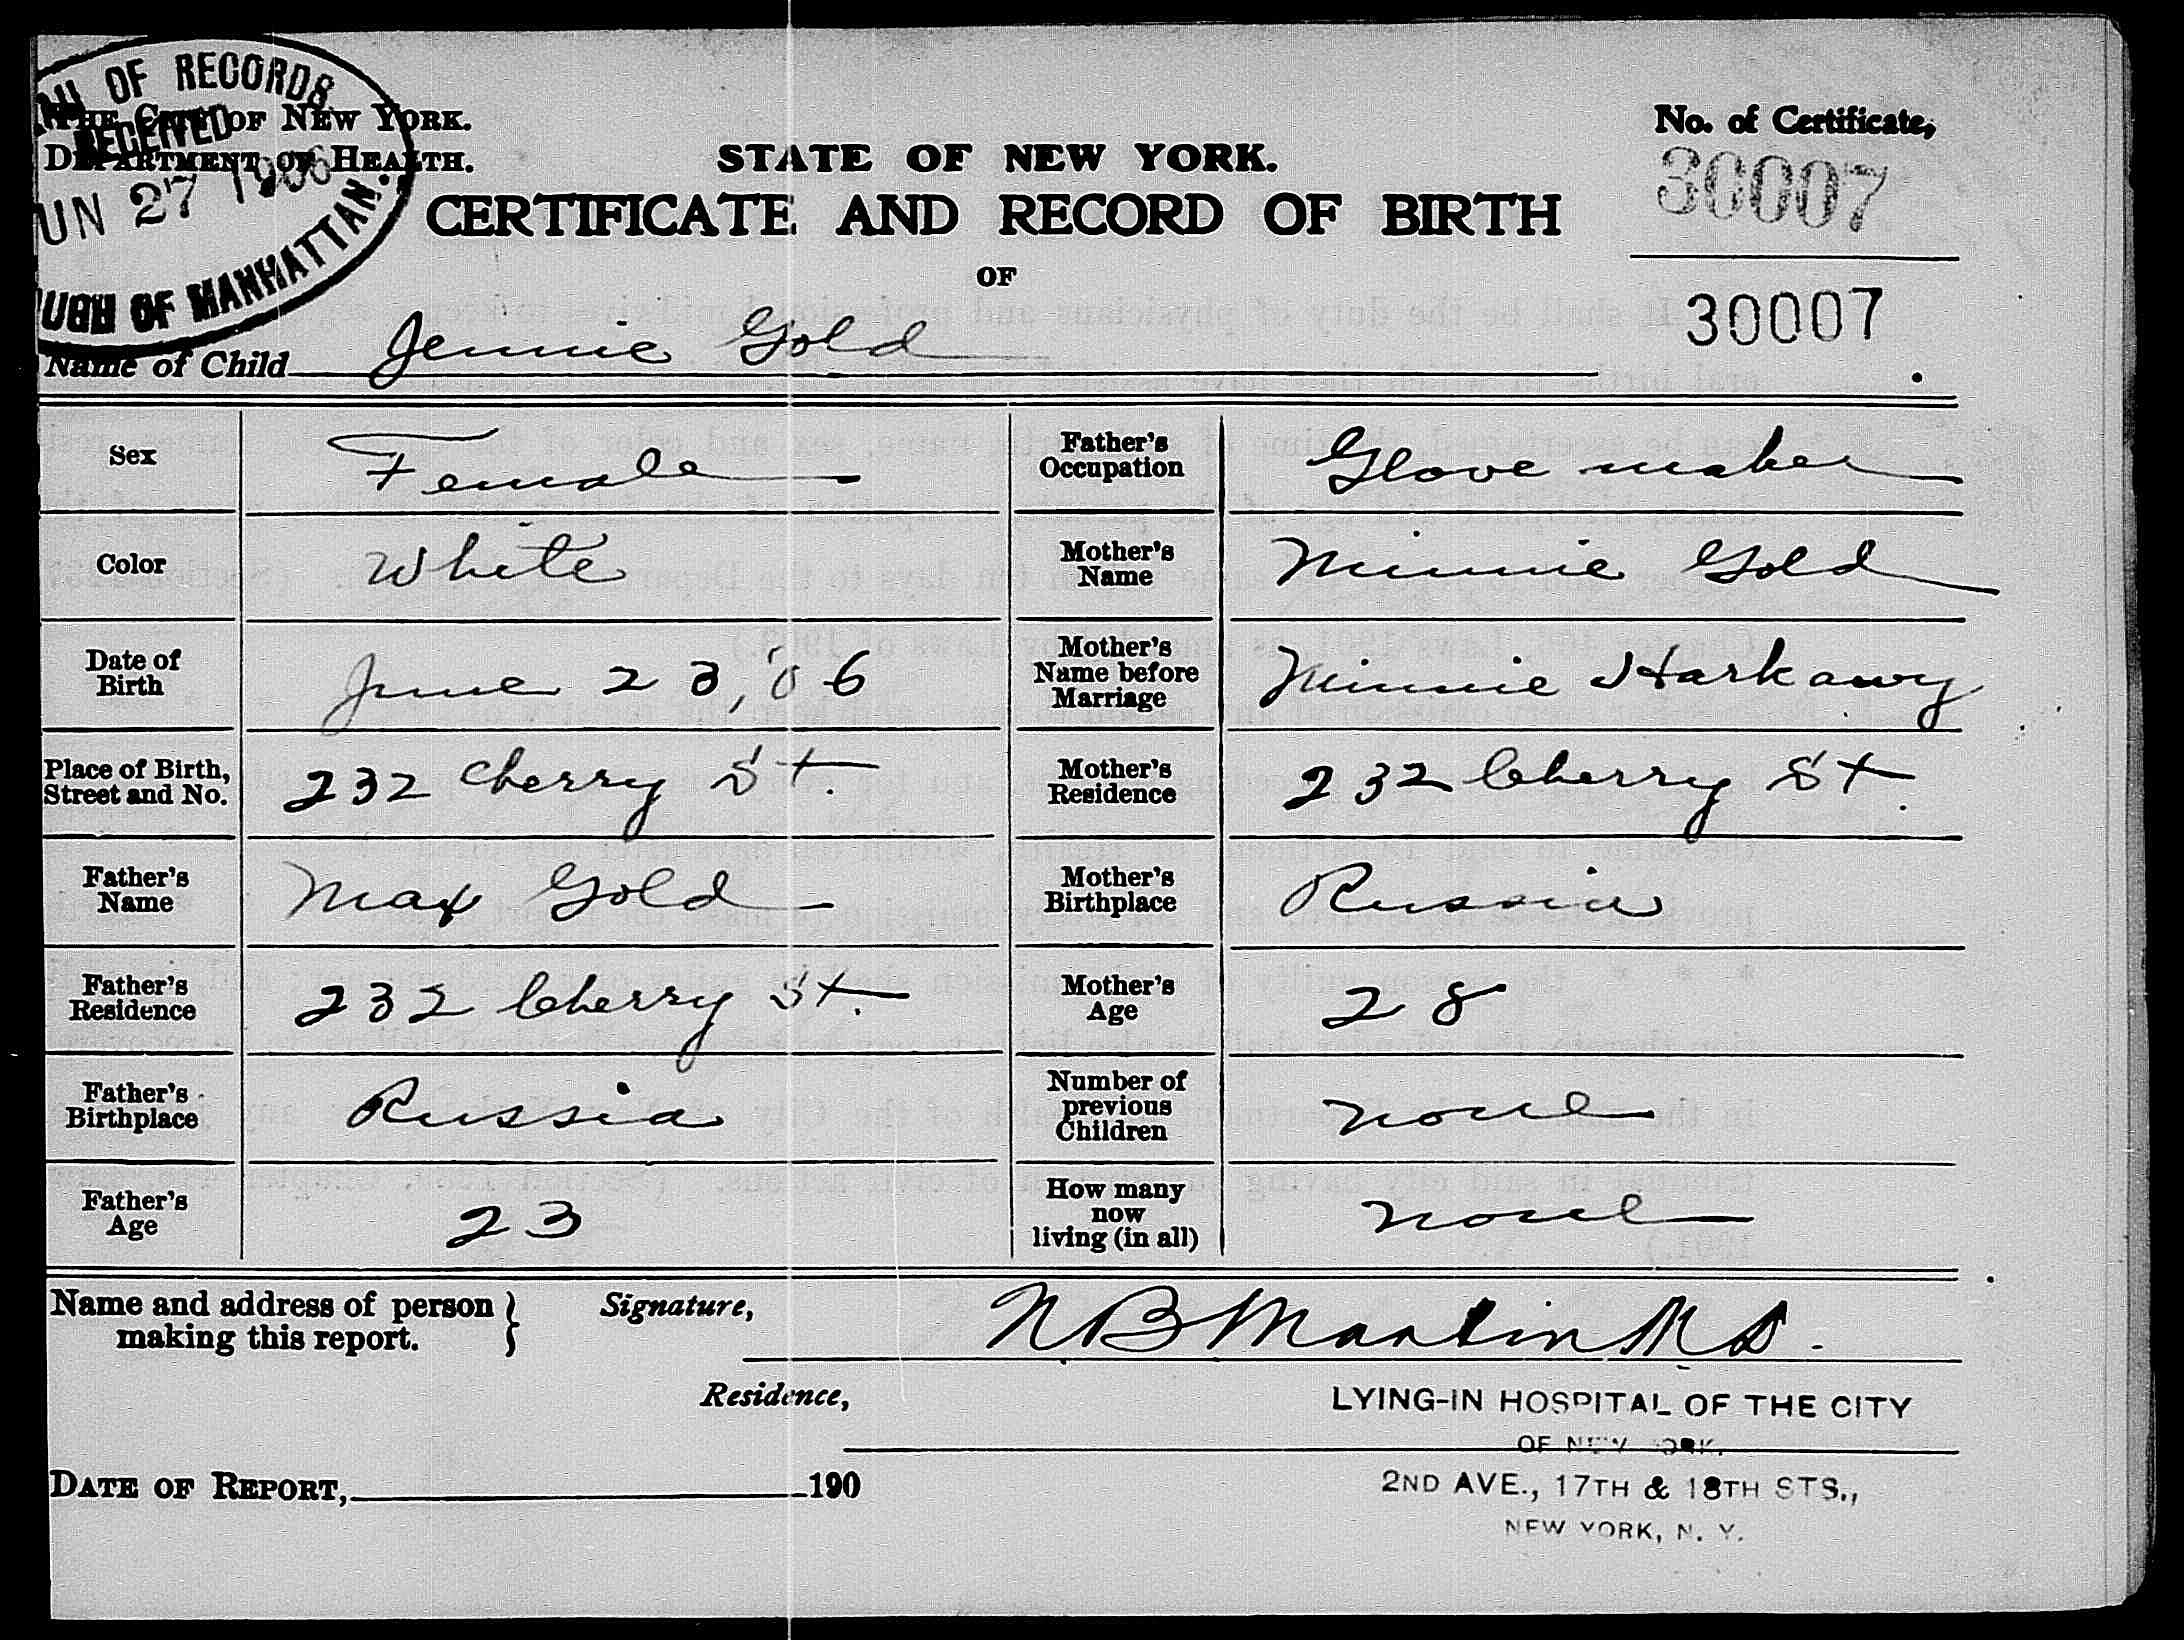 OF RECORDS
RECEIVED
UN 27 1906
UGH OF MANHATTAN.
THE CITY OF NEW YORK.
DEPARTMENT OF HEALTH.
No. of Certificate,
30007
30007
STATE OF NEW YORK.
CERTIFICATE AND RECORD OF BIRTH
OF
Name of Child Jennie Gold
Sex Female
Color White
Date of Birth June 23, '06
Place of Birth, Street and No. 232 Cherry St.
Father's Name Max Gold
Father's Residence 232 Cherry St.
Father's Birthplace Russia
Father's Age 23
Father's Occupation Glove maker
Mother's Name Minnie Gold
Mother's Name before Marriage Minnie Harkawy
Mother's Residence 232 Cherry St.
Mother's Birthplace Russia
Mother's Age 28
Number of previous Children none
How many now living (in all) none
Name and address of person making this report. } Signature, N B Martin M D.
Residence, LYING-IN HOSPITAL OF THE CITY
OF NEW YORK.
2ND AVE., 17TH & 18TH STS.,
NEW YORK, N. Y.
DATE OF REPORT, 190